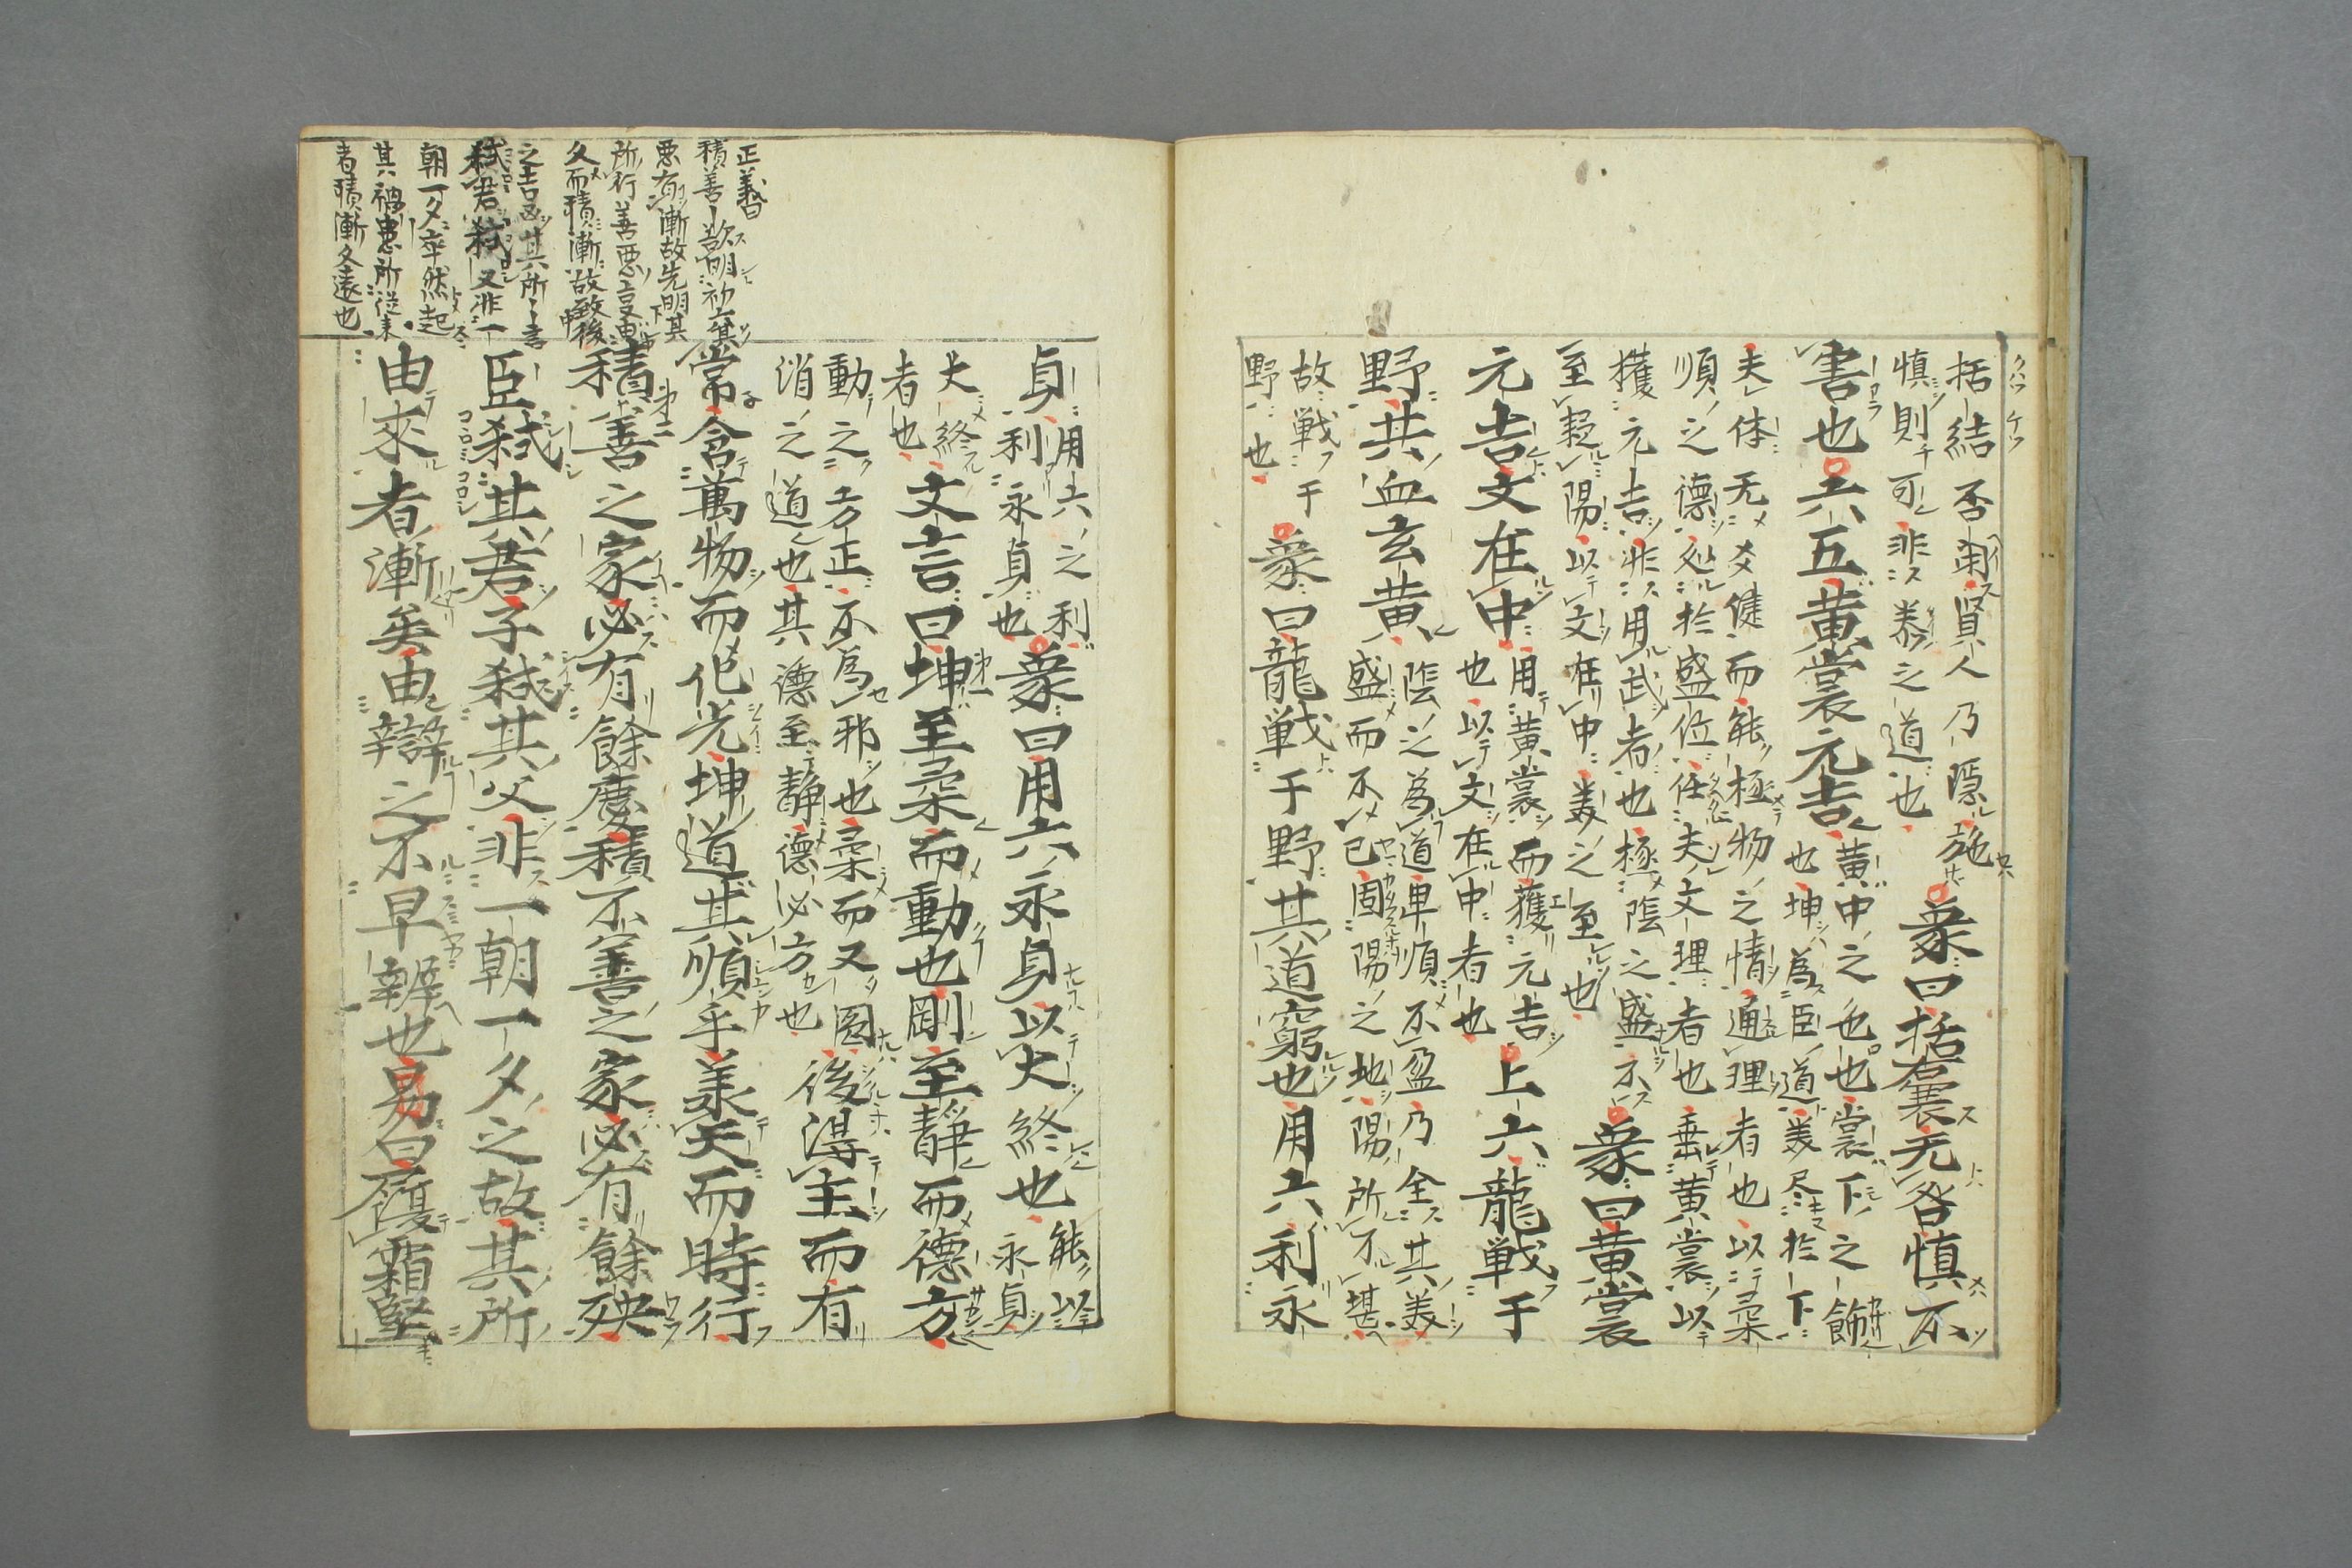 括結否閇賢人乃隱施
慎則可非泰之道也
象曰括囊无咎慎不
害也六五黄裳元吉
黄中之色也裳下之飾
也坤為臣道美尽於下
夫体无文健而能極物之情通理者也以柔
順之德処於盛位任夫文理者也垂黄裳以
獲元吉非用武者也極陰之盛不
至疑陽以文在中美之至也
象曰黄裳
元吉文在中
用黄裳而獲元吉
也以文在中者也
上六龍戦于
野其血玄黄
陰之為道卑順不盈乃全其美
盛而不已固陽之地陽所不堪
故戦于
野也
象曰龍戦于野其道窮也用六利永
貞
用六之利
利永貞也
象曰用六永貞以大終也
能以
永貞
大終
者也
文言曰坤至柔而動也剛至静而德方
動之方正不為邪也柔而又圓
消之道也其德至静德必方也
後得主而有
常含萬物而化光坤道其順乎羕天而時行
積善之家必有餘慶積不善之家必有餘殃
臣弑其君子弑其父非一朝一夕之故其所
由來者漸矣由辯之不早辨也易曰履霜堅
正義曰
積善欲明初六其
悪有漸故先明其
所行善悪事由
久而積漸故致後
之吉凶其所言
弑君弑父非一
朝一夕卒然起
其禍患所從来
者積漸久遠也